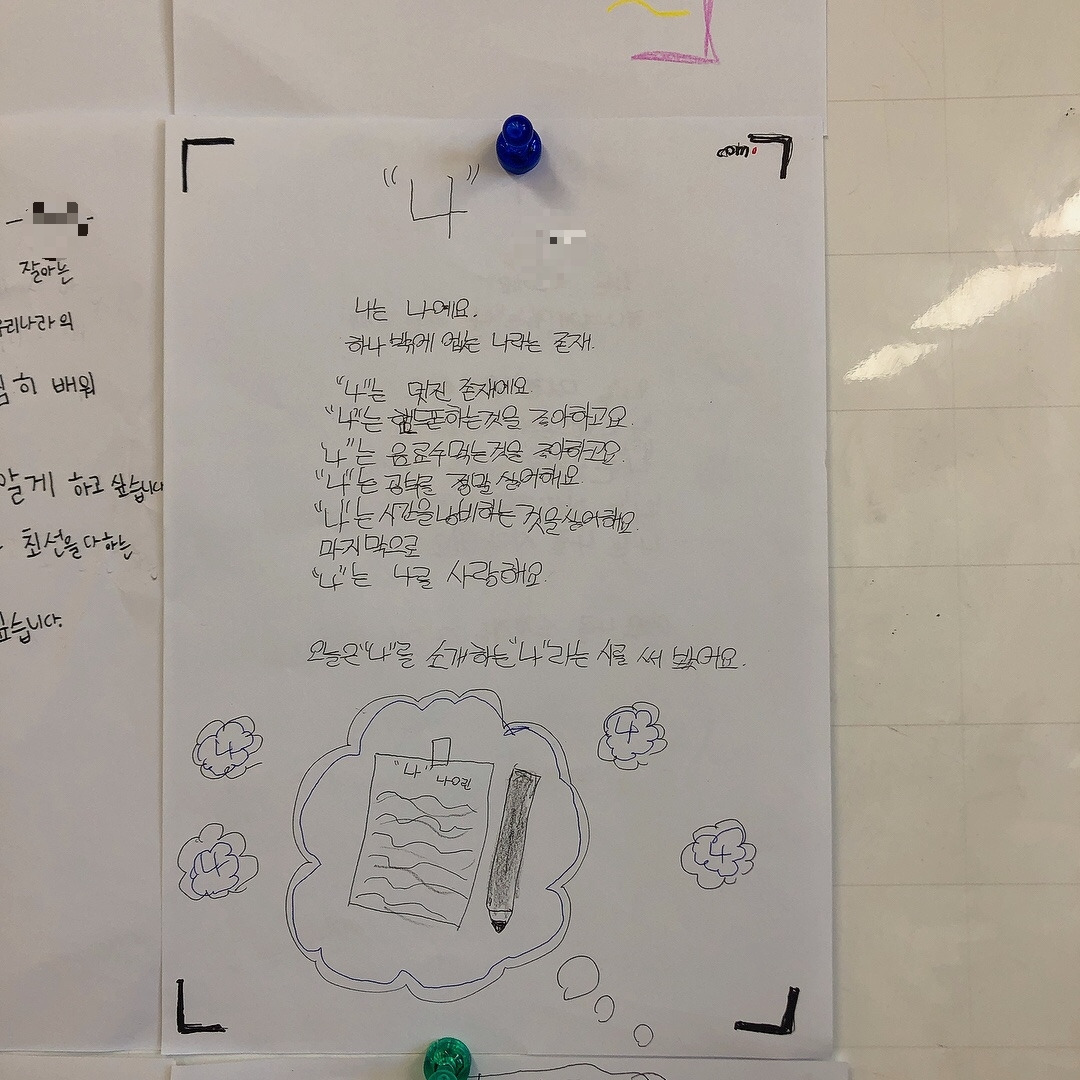 잘아는
우리나라의
히 배워
알게 하고 싶습니다
최선을 다하는
싶습니다.
com.
"나"
나는 나예요.
하나 밖에 없는 나라는 존재.
"나"는 멋진 존재에요.
"나"는 핸드폰하는것을 좋아하고요.
"나"는 음료수먹는것을 좋아하고요.
"나"는 공부를 정말 싫어해요.
"나"는 시간을낭비하는 것을싫어해요.
마지막으로
"나"는 나를 사랑해요.
오늘은"나"를 소개하는"나"라는 시를 써 봤어요.
나
나
"나"
나
나